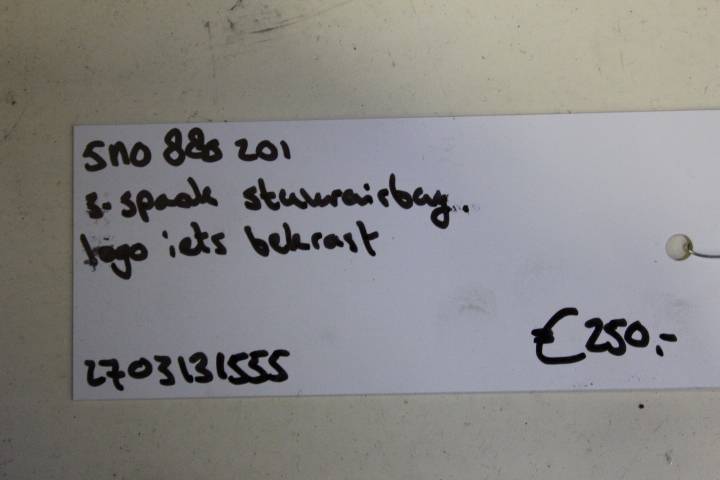 5N0 880 201
3-spaak stuurairbag.
logo iets bekrast
2703131555
€250,-